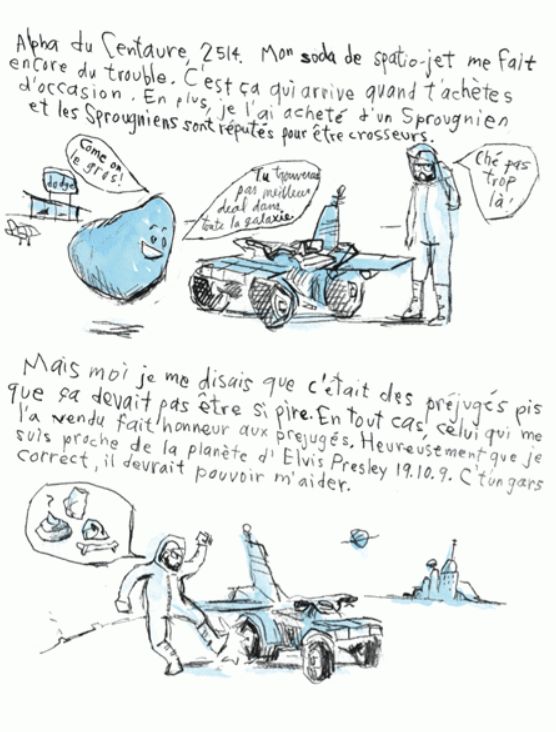 Alpha du Centaure, 2514. Mon soda de spatio-jet me fait
encore du trouble. C'est ça qui arrive quand t'achètes
d'occasion. En plus, je l'ai acheté d'un Sprougnien
et les Sprougniens sont réputés pour être crosseurs.
Come on
le gros!
dodge
Tu trouveras
pas meilleur
deal dans
toute la galaxie
Ché pas
trop
là!
Mais moi je me disais que c'était des préjugés pis
que ça devait pas être si pire. En tout cas, celui qui me
l'a vendu fait honneur aux préjugés. Heureusement que je
suis proche de la planète d'Elvis Presley 19.10.9. C't'un gars
correct, il devrait pouvoir m'aider.
?